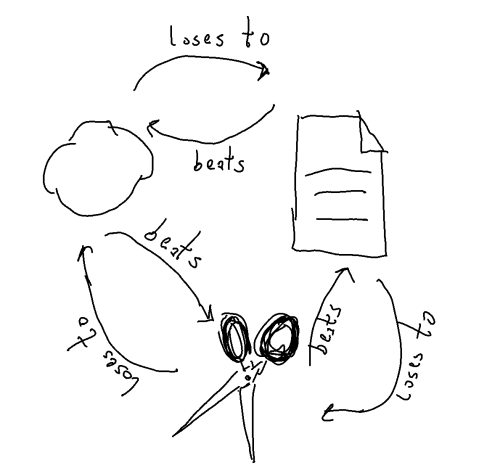 loses to
beats
beats
loses to
beats
loses to